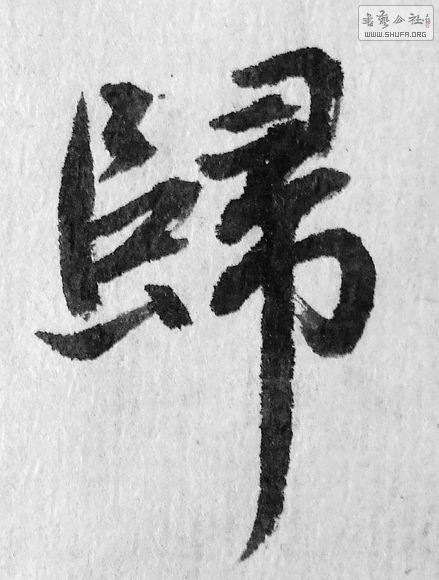 書藝公社
WWW.SHUFA.ORG
歸